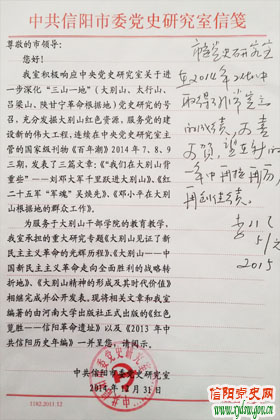 中共信阳市委党史研究室信笺
尊敬的市领导：
您好！
我室积极响应中央党史研究室关于进
一步深化“三山一地”（大别山、太行山、
吕梁山、陕甘宁革命根据地）党史研究的号
召，充分发掘大别山红色资源，服务党的建
设新的伟大工程，连续在中央党史研究室主
管的国家级刊物《百年潮》2014年7、8、9
三期，发表了三篇文章：《“我们在大别山背
重”——刘邓大军千里跃进大别山》、《红
二十五军“军魂”吴焕先》、《邓小平在大别
山根据地的群众工作》。
为服务于大别山干部学院的教育教学，
我室承担的重大研究专题《大别山见证了新
民主主义革命的光辉历程》、《大别山——中
国新民主主义革命走向全面胜利的战略转
折地》、《大别山精神的形成及其时代价值》
相继完成并公开发表。现将相关文章和我室
编著的由河南大学出版社正式出版的《红色
览胜——信阳革命遗址》以及《2013年中
共信阳历史年编》一并呈您，请阅示。
中共信阳市委党史研究室
2014年12月31日
1182.2013.12
市委党史研究室
在2014年工作中
再创佳绩。
2015
信阳党史网
www.xydsw.gov.cn